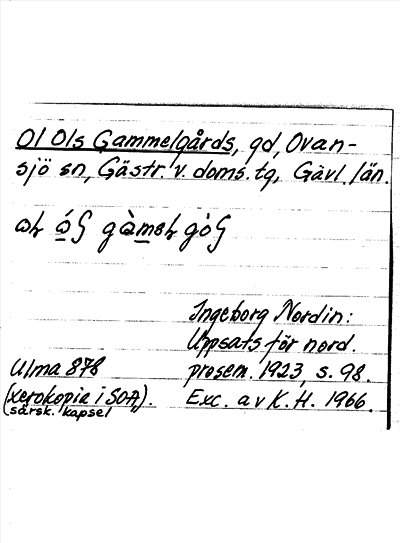 Ol Ols Gammelgårds, gd, Ovan-
sjö sn, Gästr. v. doms. tg, Gävl. län.
Ingeborg Nordin:
Uppsats för nord.
Ulma 878 prosem. 1923, s. 98.
(xerokopia i SOA). Exc. av K.H. 1966.
särsk. kapsel